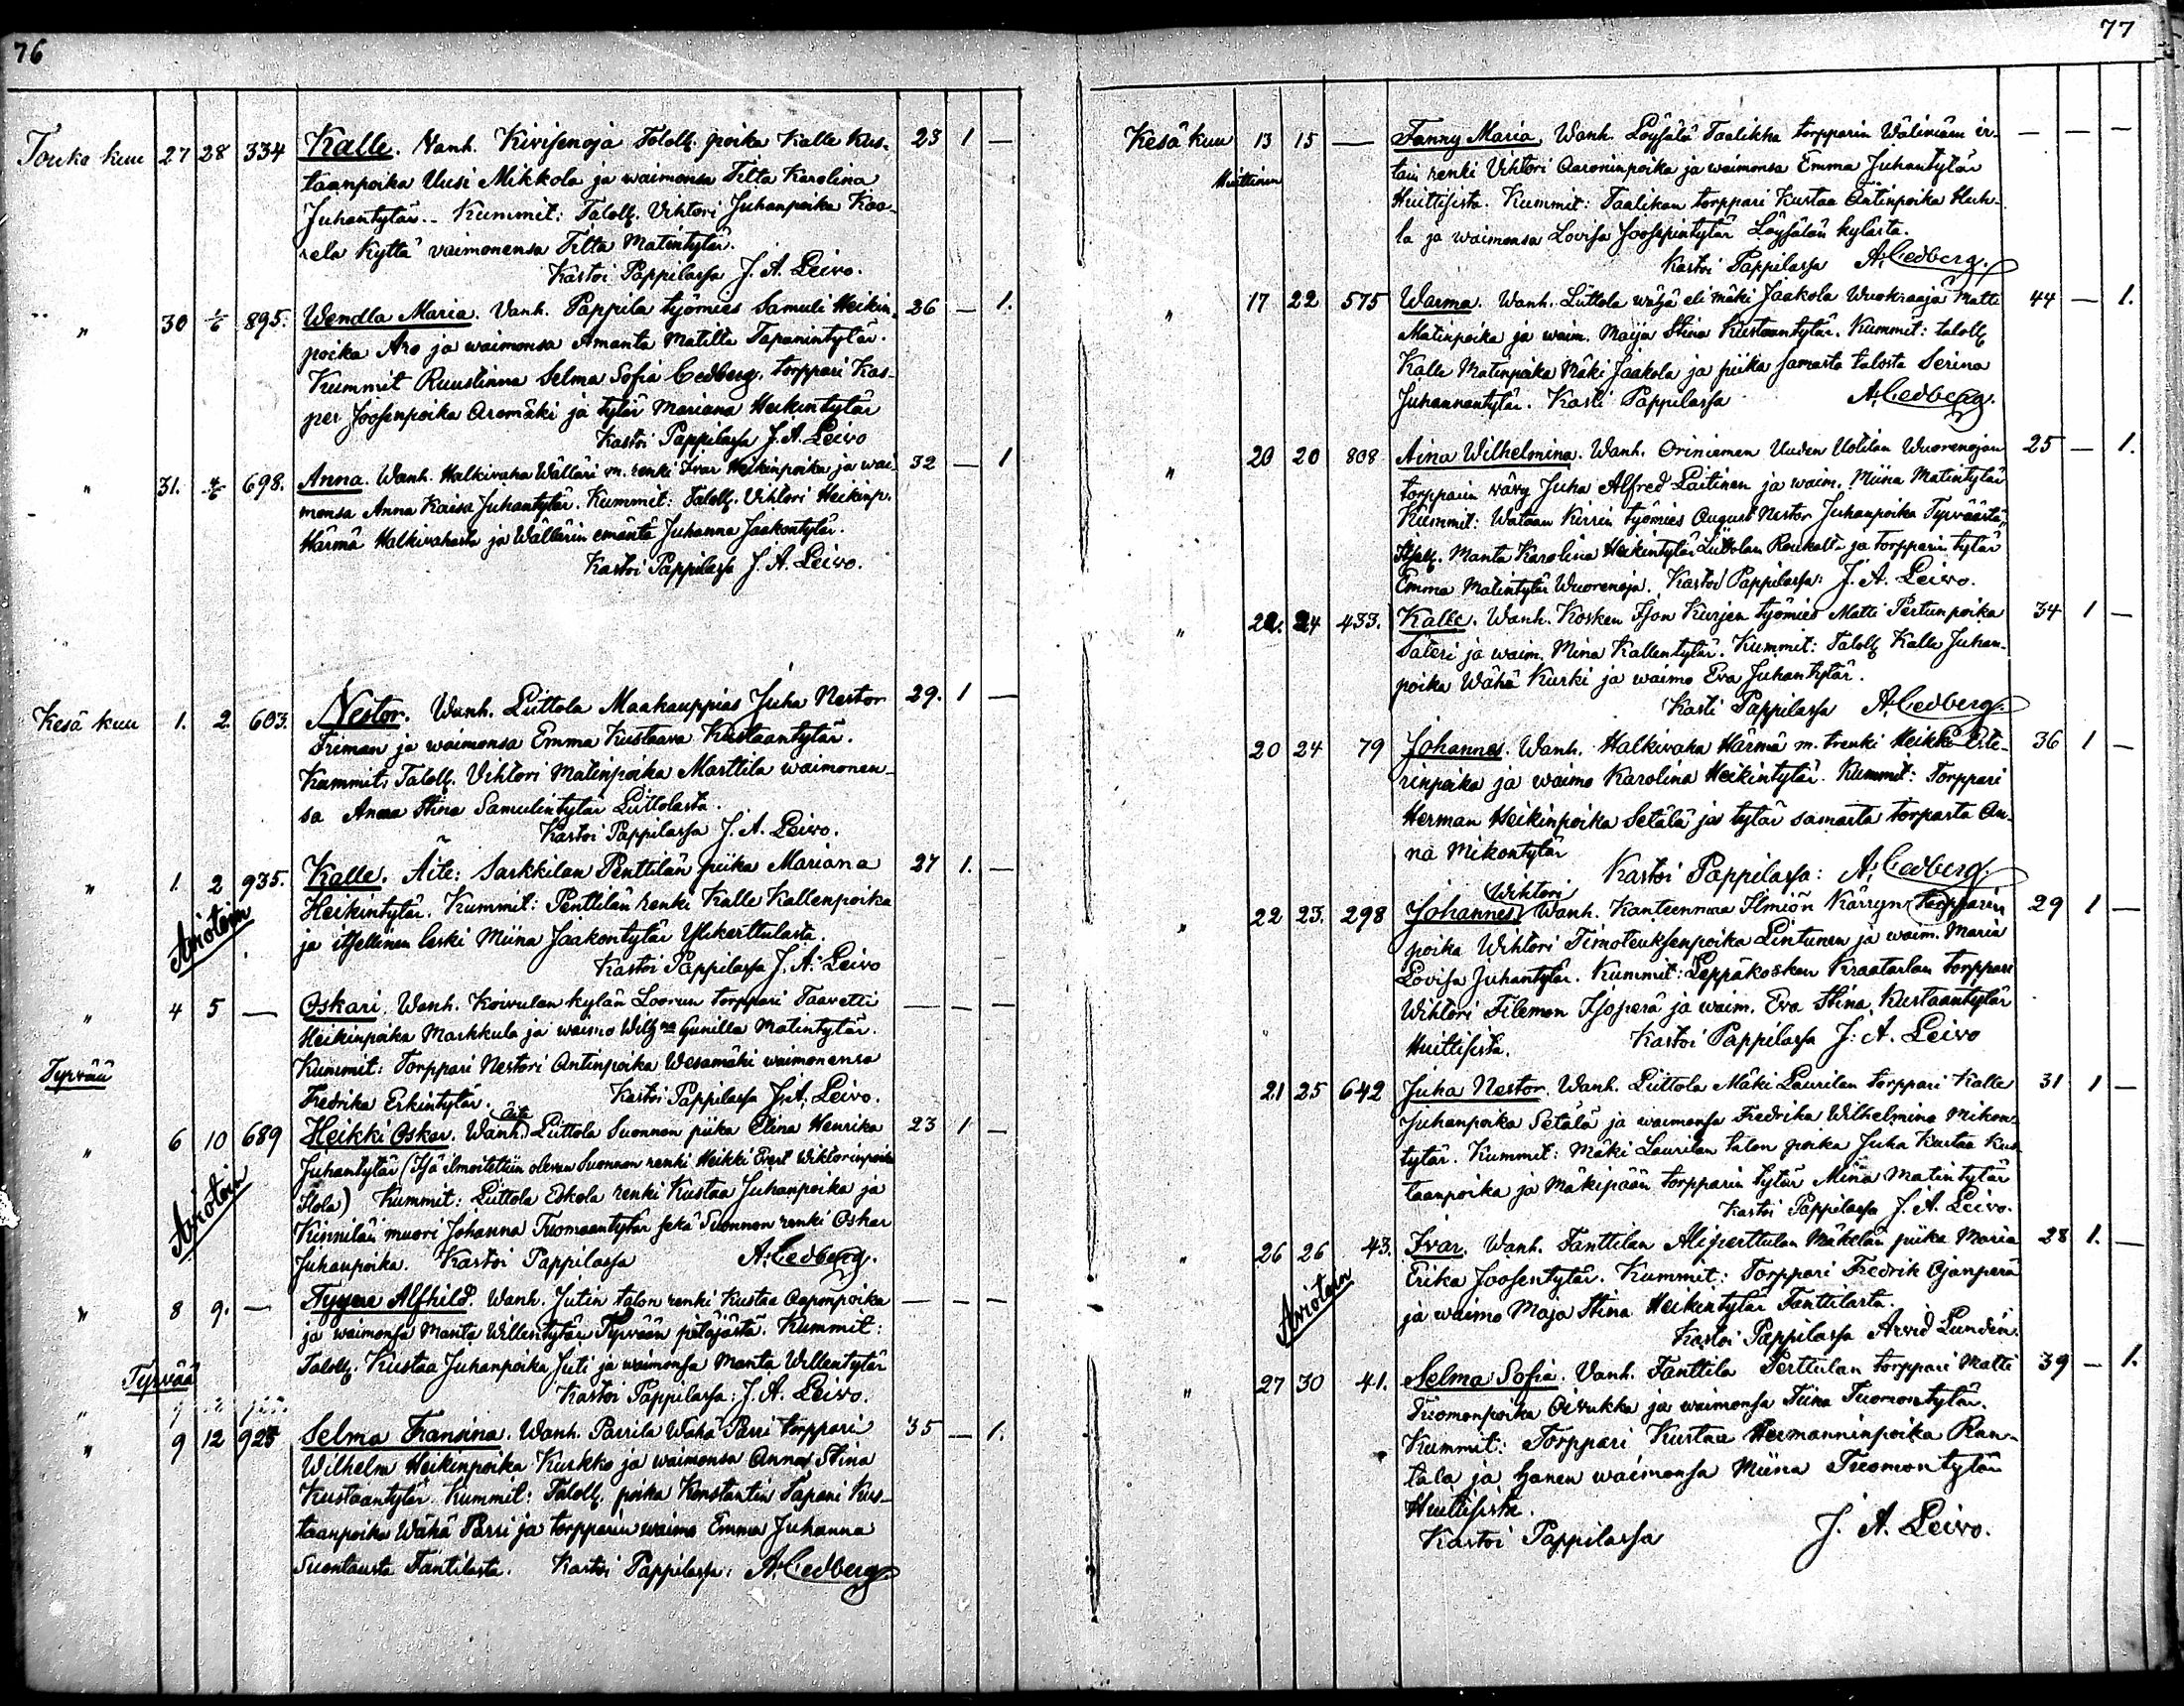 76
Touko kuu 27 28 334 Kalle. Vanh. Kivisenoja Taloll. poika Kalle Kus- 23 1 —
taanpoika Uusi Mikkola ja waimonsa Tilta Karolina
Juhantytär. – Kummit: Taloll. Vihtori Juhanpoika Kaa-
rela Kyttä vaimonensa Tilta Matintytär.
Kastoi Pappilassa J. A. Leivo.
" 30 1/6 895. Wendla Maria. Vanh. Pappila työmies Samuli Heikin- 36 — 1.
poika Aro ja waimonsa Amanta Matilta Tapanintytär.
Kummit Ruustinna Selma Sofia Cedberg, torppari Kas-
per Joosenpoika Aromäki ja tytär Mariana Heikintytär
Kastoi Pappilassa J. A. Leivo
" 31. 698. Anna. Wanh. Halkivaha Wälläri m. renki Ivar Heikinpoika ja wai- 32 — 1
monsa Anna Kaisa Juhantytär. Kummit: Taloll. Vihtori Heikinp.
Härmä Halkivahasta ja Wällärin emäntä Juhanna Jaakontytär.
Kastoi Pappilassa J. A. Leivo.
Kesä kuu 1. 2. 603. Nestor. Wanh. Liittola Maakauppias Juha Nestor 29. 1 —
Friman ja waimonsa Emma Kustaava Kustaantytär.
Kummit: Taloll. Vihtori Matinpoika Marttila waimonen-
sa Anna Stina Samulintytär Liittolasta.
Kastoi Pappilassa J. A. Leivo.
" 1. 2 935. Kalle. Äite: Sarkkilan Penttilän piika Mariana 27 1. —
Heikintytär. Kummit: Penttilän renki Kalle Kallenpoika
Aviotoin
ja itsellinen leski Miina Jaakontytär Ylikerttulasta.
Kastoi Pappilassa J. A. Leivo
" 4 5 — Oskari. Wanh. Koivulan kylän Loorun torppari Taavetti — — —
Heikinpoika Markkula ja waimo Gunilla Matintytär.
Kummit: Torppari Nestori Antinpoika Wesamäki waimonensa
Tyrvää
Fredrika Erkintytär. Kastoi Pappilassa J. A. Leivo.
Äite
" 6 10 689 Heikki Oskar. Wanh. Liittola Suonnon piika Elina Henrika 23 1 —
Juhantytär (Isä ilmoitettiin olevan Suonnon renki Heikki Evert Wiktorinpoika
Aviotoin
Ilola) Kummit: Liittola Eskola renki Kustaa Juhanpoika ja
Kinnilän muori Johanna Tuomaantytär sekä Suonnon renki Oskar
Juhanpoika. Kastoi Pappilassa A. Cedberg.
" 8 9. — Tyyne Alfhild. Wanh. Jutin talon renki Kustaa Aaponpoika — — —
ja waimonsa Manta Willentytär Tyrvään pitäjästä. Kummit:
Taloll. Kustaa Juhanpoika Juti ja waimonsa Manta Willentytär
Tyrvää
Kastoi Pappilassa: J. A. Leivo.
" 9 12 925 Selma Fransina. Wanh. Parrila Wähä Parri torppari 35 — 1.
Wilhelm Heikinpoika Kurkko ja waimonsa Anna Stina
Kustaantytär. Kummit: Taloll. poika Konstantin Tapani Kus-
taanpoika Wähä Parri ja torpparin waimo Emma Juhanna
Suontausta Fanttilasta. Kastoi Pappilassa: A. Cedberg
77
Kesä kuu 13 15 — Fanny Maria. Wanh. Löysälä Taalikka torpparin Wäliniän ir- — — —
Huittinen
tain renki Vihtori Aaroninpoika ja waimonsa Emma Juhantytär
Huittisista. Kummit: Taalikan torppari Kustaa Antinpoika Huh-
la ja waimonsa Lovisa Joosepintytär Löysälän kylästä.
Kastoi Pappilassa A. Cedberg.
" 17 22 575 Warma. Wanh. Liittola wähä eli mäki Jaakola Wuokraaja Matti 44 — 1.
Matinpoika ja waim. Maija Stina Kustaantytär. Kummit: taloll.
Kalle Matinpoika Mäki Jaakola ja piika samasta talosta Serina
Juhannantytär. Kasti Pappilassa A. Cedberg.
" 20 20 808 Aina Wilhelmina. Wanh. Oriniemen Uuden Uotilan Wuorenojan 25 — 1.
torpparin vävy Juha Alfred Laitinen ja waim. Miina Matintytär
Kummit: Wataan Kirrin työmies August Nestor Juhanpoika Tyrväästä,
Itsell. Manta Karolina Heikintytär Liittolan Raukalta ja torpparin tytär
Emma Matintytär Wuorenoja. Kastoi Pappilassa: J. A. Leivo.
" 22. 24 433. Kalle. Wanh. Kosken Ison Kurjen työmies Matti Pertunpoika 34 1 —
Säteri ja waim. Mina Kallentytär. Kummit: Taloll. Kalle Juhan-
poika Wähä Kurki ja waimo Eva Juhantytär.
Kasti Pappilassa A. Cedberg.
20 24 79 Johannes. Wanh. Halkivaha Härmä m. trenki Heikki Este- 36 1 —
rinpoika ja waimo Karolina Heikintytär. Kummit: Torppari
Herman Heikinpoika Setälä ja tytär samasta torpasta An-
na Mikontytär
Kastoi Pappilassa: A. Cedberg.
Wihtori
" 22 23. 298 Johannes. Wanh. Kanteenmaa Ilmiön Kärryn torpparin 29 1 —
poika Wihtori Timoteuksenpoika Lintunen ja waim. Maria
Lovisa Juhantytär. Kummit: Leppäkosken Kraatarlan torppari
Wihtori Filemon Isoperä ja waim. Eva Stina Kustaantytär
Huittisista. Kastoi Pappilassa J. A. Leivo
21 25 642 Juha Nestor. Wanh. Liittola Mäki Laurilan torppari Kalle 31 1 —
Juhanpoika Setälä ja waimonsa Fredrika Wilhelmina Mikon-
tytär. Kummit: Mäki Laurilan talon poika Juha Kustaa Kus-
taanpoika ja Mäkipään torpparin tytär Miina Matintytär
Kastoi Pappilassa J. A. Leivo.
" 26 26 43. Ivar. Wanh. Fanttilan Aliperttulan Mäkelän piika Maria 28 1. —
Erika Joosentytär. Kummit: Torppari Fredrik Ojanperä
Aviotoin
ja waimo Maja Stina Heikintytär Fanttilasta.
Kastoi Pappilassa Arvid Lundén.
" 27 30 41. Selma Sofia. Vanh. Fanttila Perttulan torppari Matti 39 — 1.
Tuomonpoika Oivukka ja waimonsa Tiina Tuomontytär.
Kummit: Torppari Kustaa Hermanninpoika Ran-
tala ja hänen waimonsa Miina Tuomontytär
Huittisista.
Kastoi Pappilassa J. A. Leivo.